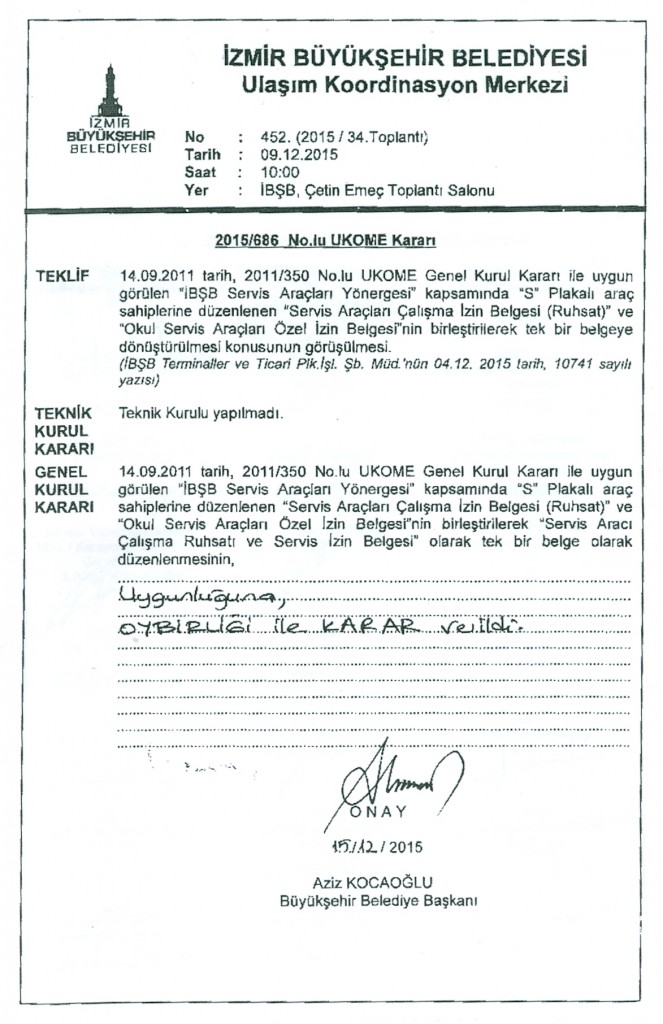 İZMİR BÜYÜKŞEHİR BELEDİYESİ
Ulaşım Koordinasyon Merkezi
İZMİR
BÜYÜKŞEHİR
BELEDİYESİ
No : 452. (2015 / 34.Toplantı)
Tarih : 09.12.2015
Saat : 10:00
Yer : İBŞB, Çetin Emeç Toplantı Salonu
2015/686 No.lu UKOME Kararı
TEKLİF
14.09.2011 tarih, 2011/350 No.lu UKOME Genel Kurul Kararı ile uygun
görülen "İBŞB Servis Araçları Yönergesi" kapsamında "S" Plakalı araç
sahiplerine düzenlenen "Servis Araçları Çalışma İzin Belgesi (Ruhsat)" ve
"Okul Servis Araçları Özel İzin Belgesi"nin birleştirilerek tek bir belgeye
dönüştürülmesi konusunun görüşülmesi.
(İBŞB Terminaller ve Ticari Plk.İşl. Şb. Müd.'nün 04.12. 2015 tarih, 10741 sayılı
yazısı)
TEKNİK
KURUL
KARARI
Teknik Kurulu yapılmadı.
GENEL
KURUL
KARARI
14.09.2011 tarih, 2011/350 No.lu UKOME Genel Kurul Kararı ile uygun
görülen "İBŞB Servis Araçları Yönergesi" kapsamında "S" Plakalı araç
sahiplerine düzenlenen "Servis Araçları Çalışma İzin Belgesi (Ruhsat)" ve
"Okul Servis Araçları Özel İzin Belgesi"nin birleştirilerek "Servis Aracı
Çalışma Ruhsatı ve Servis İzin Belgesi" olarak tek bir belge olarak
düzenlenmesinin,
Uygunluğuna,
OYBİRLİĞİ ile KARAR verildi.
ONAY
15/12/2015
Aziz KOCAOĞLU
Büyükşehir Belediye Başkanı